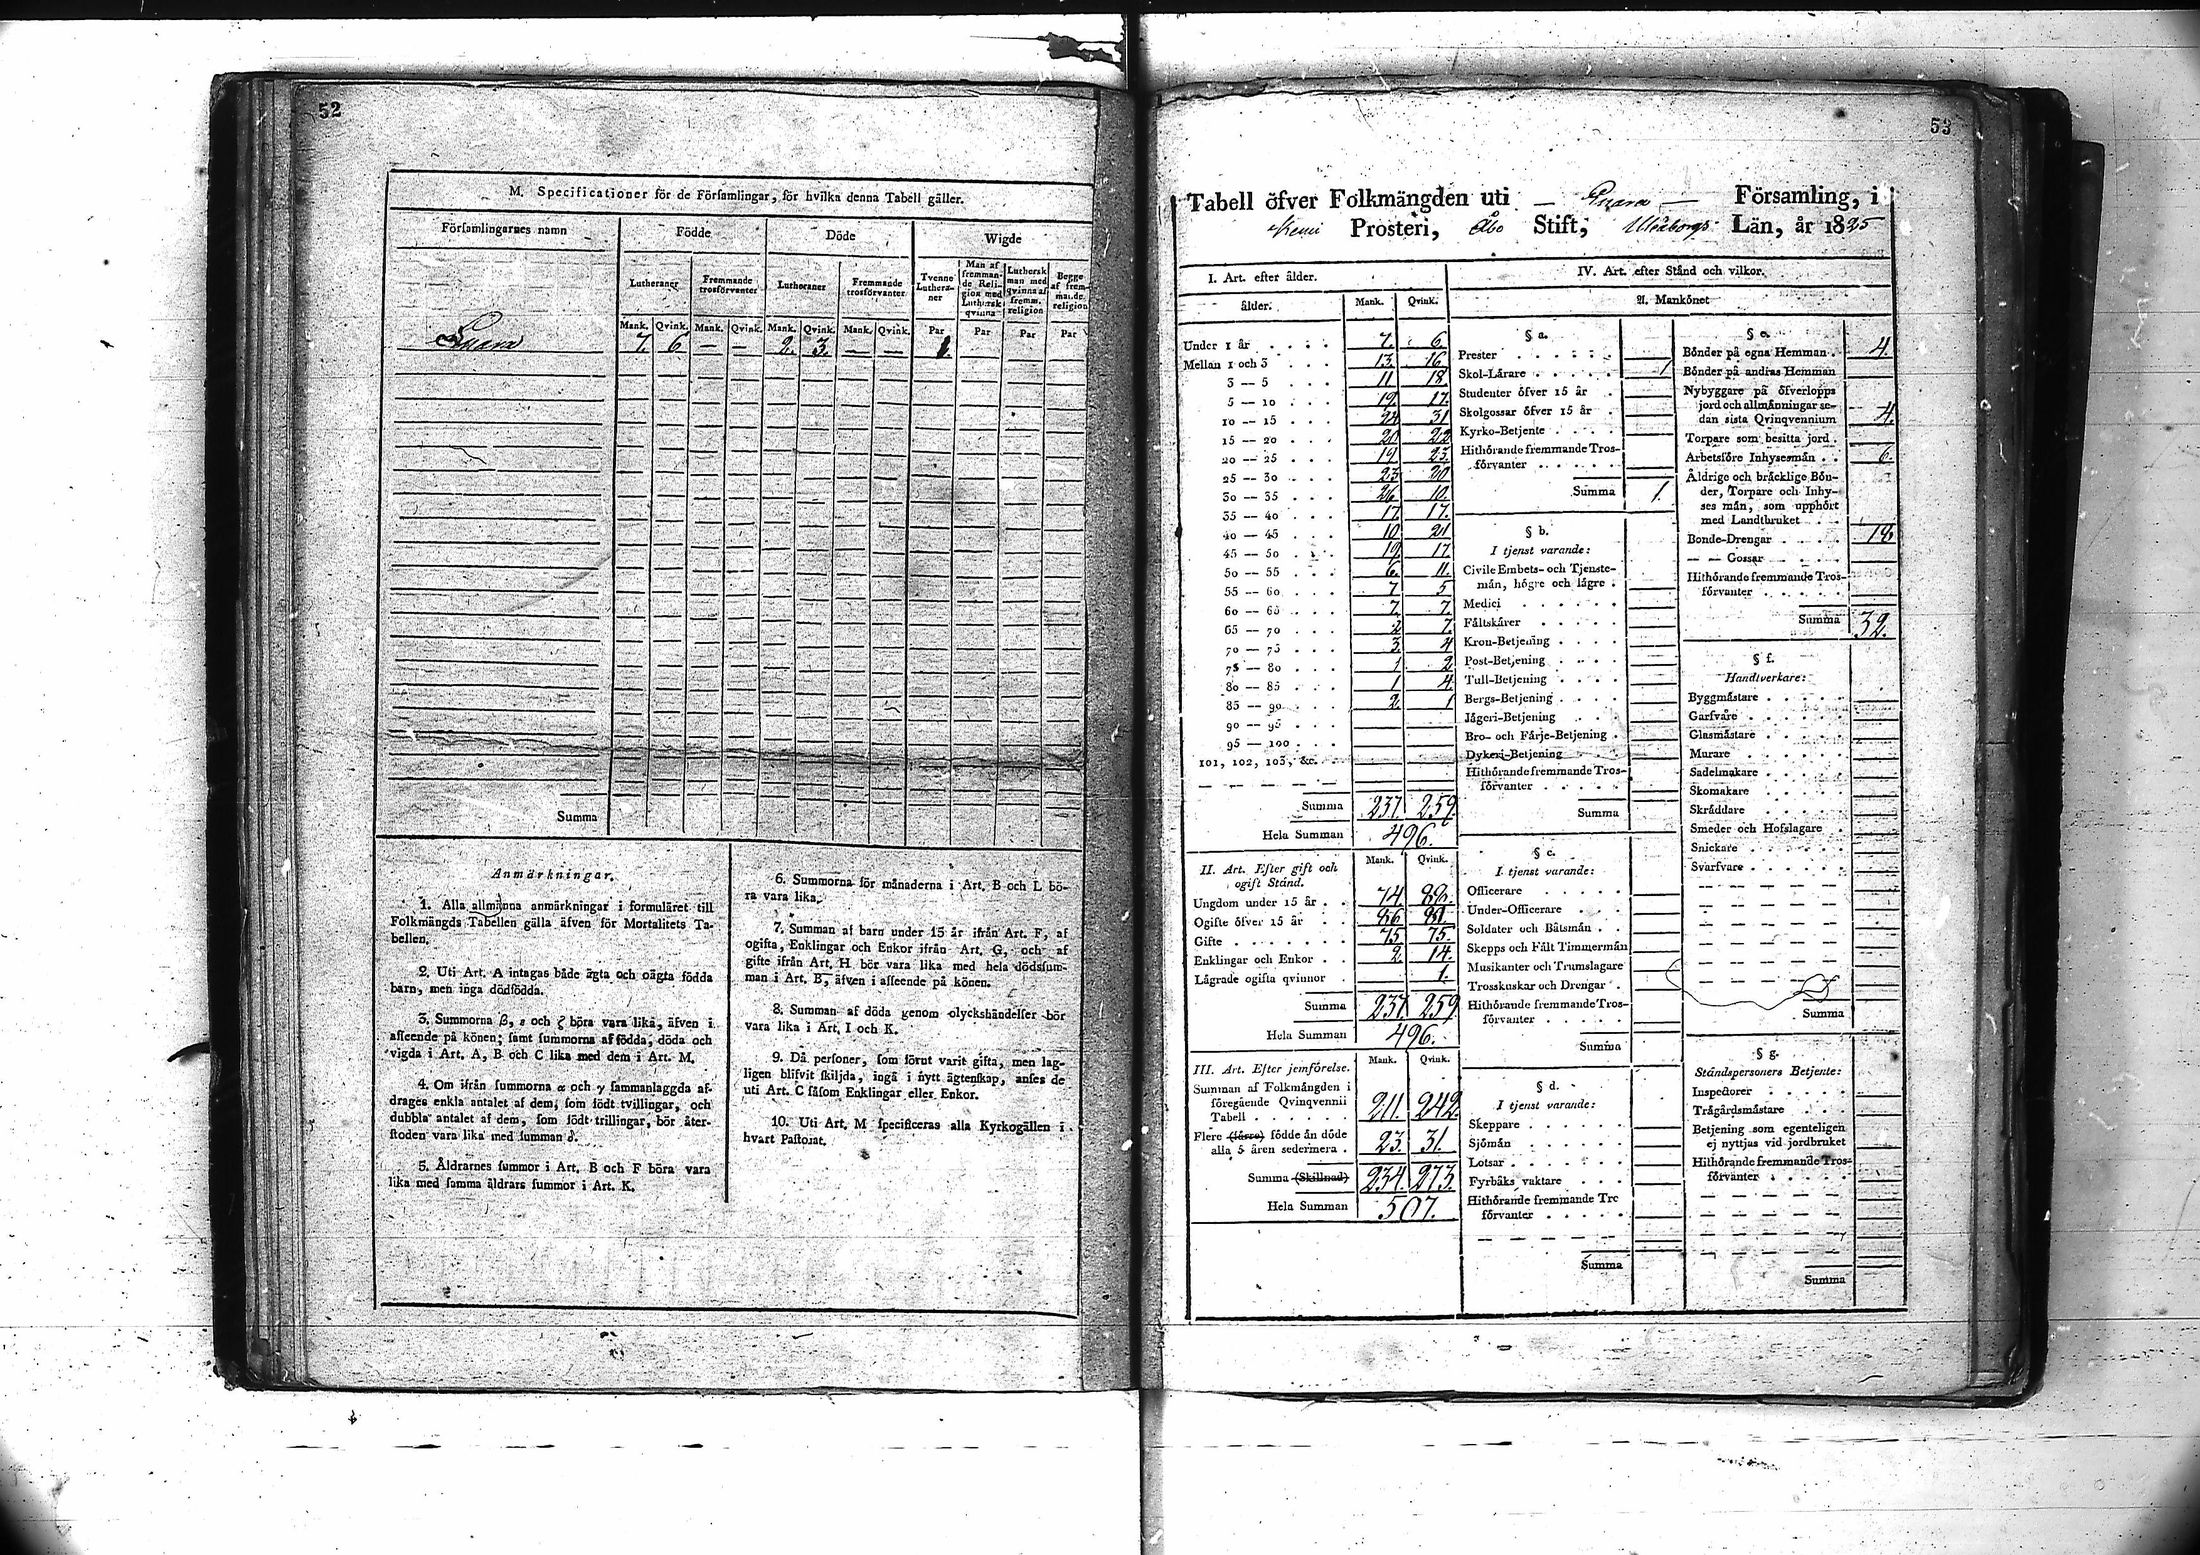 52
M. Specificationer för de Församlingar, för hvilka denna Tabell gäller.
Församlingarnes namn
Födde
Döde
Wigde
Lutheraner
Fremmande trosförvanter
Lutheraner
Fremmande trosförvanter
Tvenne Lutheraner
Man af fremmande Religion med Luthersk qvinna
Luthersk man med qvinna af fremm. religion
Begge af fremmande religion
Mank. Qvink. Mank. Qvink. Mank. Qvink. Mank. Qvink. Par Par Par Par
Enara 7. 6 — — 2. 3. — — 1.
Summa
Anmärkningar.
1. Alla allmänna anmärkningar i formuläret till
Folkmängds Tabellen gälla äfven för Mortalitets Ta-
bellen.
2. Uti Art. A intagas både ägta och oägta födda
barn, men inga dödfödda.
3. Summorna β, ε och ζ böra vara lika, äfven i
afseende på könen; samt summorna af födda, döda och
vigda i Art. A, B och C lika med dem i Art. M.
4. Om ifrån summorna α och γ sammanlaggda af-
drages enkla antalet af dem, som födt tvillingar, och
dubbla antalet af dem, som födt trillingar, bör åter-
stoden vara lika med summan δ.
5. Åldrarnes summor i Art. B och F böra vara
lika med samma åldrars summor i Art. K.
6. Summorna för månaderna i Art. B och L bö-
ra vara lika.
7. Summan af barn under 15 år ifrån Art. F, af
ogifta, Enklingar och Enkor ifrån Art. G, och af
gifte ifrån Art. H bör vara lika med hela dödssum-
man i Art. B, äfven i afseende på könen.
8. Summan af döda genom olyckshändelser bör
vara lika i Art. I och K.
9. Då personer, som förut varit gifta, men lag-
ligen blifvit skiljda, ingå i nytt ägtenskap, anses de
uti Art. C såsom Enklingar eller Enkor.
10. Uti Art. M specificeras alla Kyrkogällen i
hvart Pastorat.
53
Tabell öfver Folkmängden uti — Enara — Församling, i
Kemi Prosteri, Åbo Stift, Uleåborgs Län, år 1825
I. Art. efter ålder.
ålder. Mank. Qvink.
Under 1 år . . . . 7. 6.
Mellan 1 och 3 . . . 13. 16.
3 — 5 . . . 11 18
5 — 10 . . . 19. 17.
10 — 15 . . . 24 31
15 — 20 . . . 20 22
20 — 25 . . . 19 23.
25 — 30 . . . 23 20
30 — 35 . . . 26 10.
35 — 40 . . . 17. 17.
40 — 45 . . . 10 21
45 — 50 . . . 19 17.
50 — 55 . . . 6. 11.
55 — 60 . . . 7 5
60 — 65 . . . 7. 7.
65 — 70 . . . 2 7.
70 — 75 . . . 3. 4
75 — 80 . . . 1 2
80 — 85 . . . 1 4.
85 — 90 . . . 2. 1
90 — 95 . . .
95 — 100 . . .
101, 102, 103, &c.
Summa 237. 259.
Hela Summan 496.
II. Art. Efter gift och ogift Stånd. Mank. Qvink.
Ungdom under 15 år . . 74 88.
Ogifte öfver 15 år . . 86 81.
Gifte . . . . . . . 75 75.
Enklingar och Enkor . . 2. 14.
Lägrade ogifta qvinnor 1.
Summa 237. 259
Hela Summan 496.
III. Art. Efter jemförelse. Mank. Qvink.
Summan af Folkmängden i
föregående Qvinqvennii
Tabell . . . . . . 211. 242.
Flere (färre) födde än döde
alla 5 åren sedermera . 23. 31.
Summa (Skillnad) 234. 273.
Hela Summan 507.
IV. Art. efter Stånd och vilkor.
A. Mankönet
§ a.
Prester . . . . . .
Skol-Lärare . . . . . 1
Studenter öfver 15 år .
Skolgossar öfver 15 år .
Kyrko-Betjente . . . .
Hithörande fremmande Tros-
förvanter . . . . .
Summa 1.
§ b.
I tjenst varande:
Civile Embets- och Tjenste-
män, högre och lägre .
Medici . . . . . .
Fältskärer . . . . .
Kron-Betjening . . . .
Post-Betjening . . . .
Tull-Betjening . . . .
Bergs-Betjening . . . .
Jägeri-Betjening . .
Bro- och Färje-Betjening .
Dykeri-Betjening
Hithörande fremmande Tros-
förvanter . . . . .
Summa
§ c.
I tjenst varande:
Officerare . . . . .
Under-Officerare . . .
Soldater och Båtsmän . .
Skepps och Fält Timmermän
Musikanter och Trumslagare
Trosskuskar och Drengar .
Hithörande fremmande Tros-
förvanter . . . . .
Summa
§ d.
I tjenst varande:
Skeppare . . . . .
Sjömän . . . . .
Lotsar . . . . . .
Fyrbåks vaktare . . .
Hithörande fremmande Tro
förvanter . . . . .
Summa
§ e.
Bönder på egna Hemman . 4.
Bönder på andras Hemman
Nybyggare på öfverlopps
jord och allmänningar se-
dan sista Qvinqvennium 4.
Torpare som besitta jord .
Arbetsföre Inhysesmän . . 6.
Åldrige och bräcklige Bön-
der, Torpare och Inhy-
ses män, som upphört
med Landtbruket . .
Bonde-Drengar . . . . 18
— — Gossar . . . .
Hithörande fremmande Tros-
förvanter . . . . .
Summa 32.
§ f.
Handtverkare:
Byggmästare . . . . .
Garfvare . . . . . .
Glasmästare . . . . .
Murare . . . . . .
Sadelmakare . . . . .
Skomakare . . . . .
Skräddare . . . . .
Smeder och Hofslagare .
Snickare . . . . . .
Svarfvare . . . . .
Summa
§ g.
Ståndspersoners Betjente:
Inspectorer . . . . .
Trägårdsmästare . . .
Betjening som egenteligen
ej nyttjas vid jordbruket
Hithörande fremmande Tros-
förvanter . . . . .
Summa